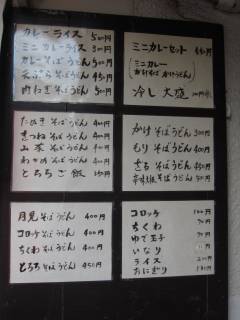 カレーライス 500円
ミニカレーライス 300円
カレーそばうどん 500円
天ぷらそばうどん 450円
肉わぎそばうどん 500円
ミニカレーセット
ミニカレー
かけそばかけうどん
冷し 大盛
たぬきそばうどん 400円
きつねそばうどん 400円
山菜そばうどん 400円
わかめそばうどん 400円
とろろご飯
かけそばうどん
もりそばうどん
ざるそばうどん
月見そばうどん 400円
コロッケそばうどん 400円
ちくわそばうどん 400円
とろろそばうどん 450円
コロッケ 100円
ちくわ
ゆで玉子
いなり
ライス
おにぎり